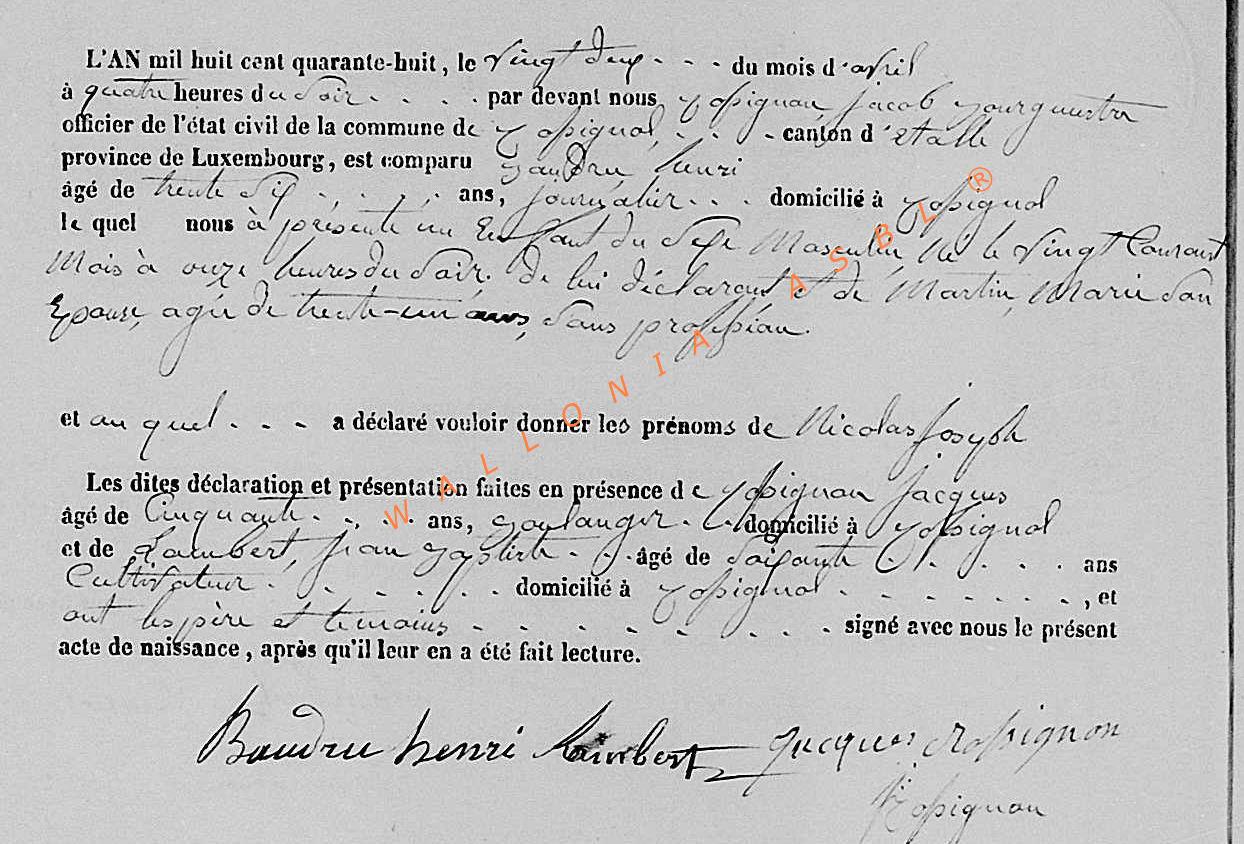 L'AN mil huit cent quarante-huit, le vingt deux - - - du mois d'avril
à quatre heures du Soir - - - - par devant nous Rossignon, Jacob Bourguestre
officier de l'état civil de la commune de Rossignol, - - - canton d'étalle
province de Luxembourg, est comparu Baudru henri
âgé de trente Six - - - - ans, journalier - - - domicilié à Rossignol
le quel nous à présenté un Enfant du Sexe Masculin, Né le vingt Courant
Mois à onze heures du Soir, de lui déclarant et de Martin, Marie Son
Epouse, agée de trente-un ans, Sans profession.
et au quel - - - a déclaré vouloir donner les prénoms de Nicolas Joseph
Les dites déclaration et présentation faites en présence de Rossignon Jacques
âgé de Cinquante - - - - ans, Boulanger - - domicilié à Rossignol
et de Lambert, jean Baptiste - - - âgé de Soixante - - - - ans
Cultivateur - - - - - - domicilié à Rossignol - - - - - - - , et
ont les père et temoins - - - - - - - - signé avec nous le présent
acte de naissance, après qu'il leur en a été fait lecture.
Baudru henri Lambert Jacques Rossignon
Rossignon
W A L L O N I A A S B L ®